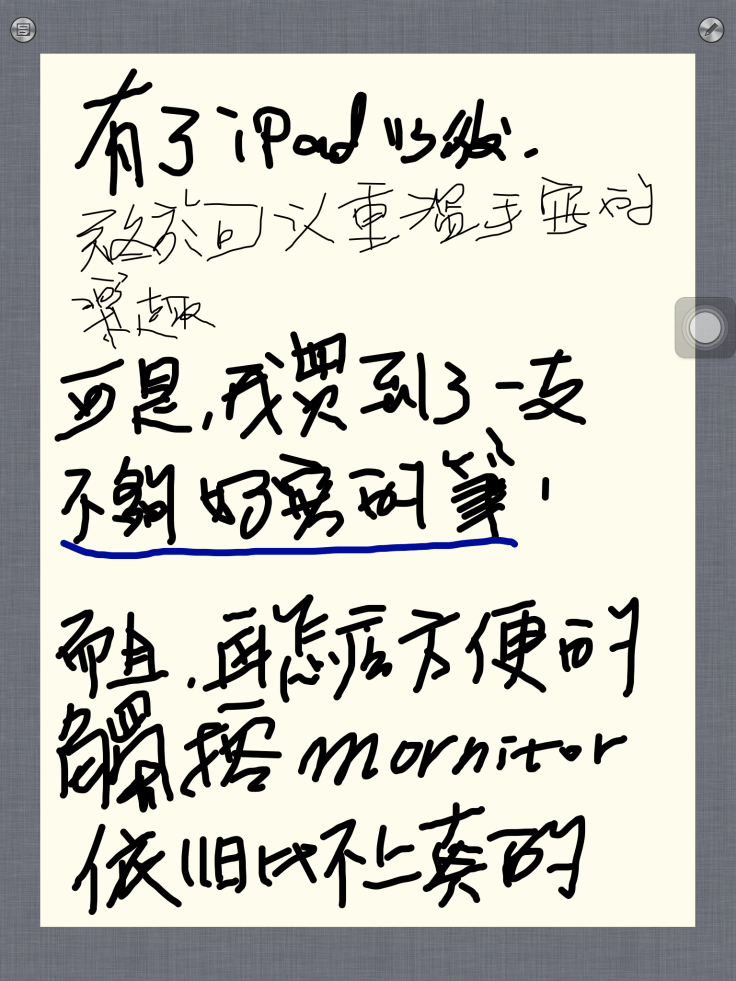 有了 iPad 以後.
終於可以重溫手寫的
樂趣
可是,我買到了一支
不夠好寫的筆,
而且,再怎麼方便的
觸摸 mornitor
依旧比不上真的